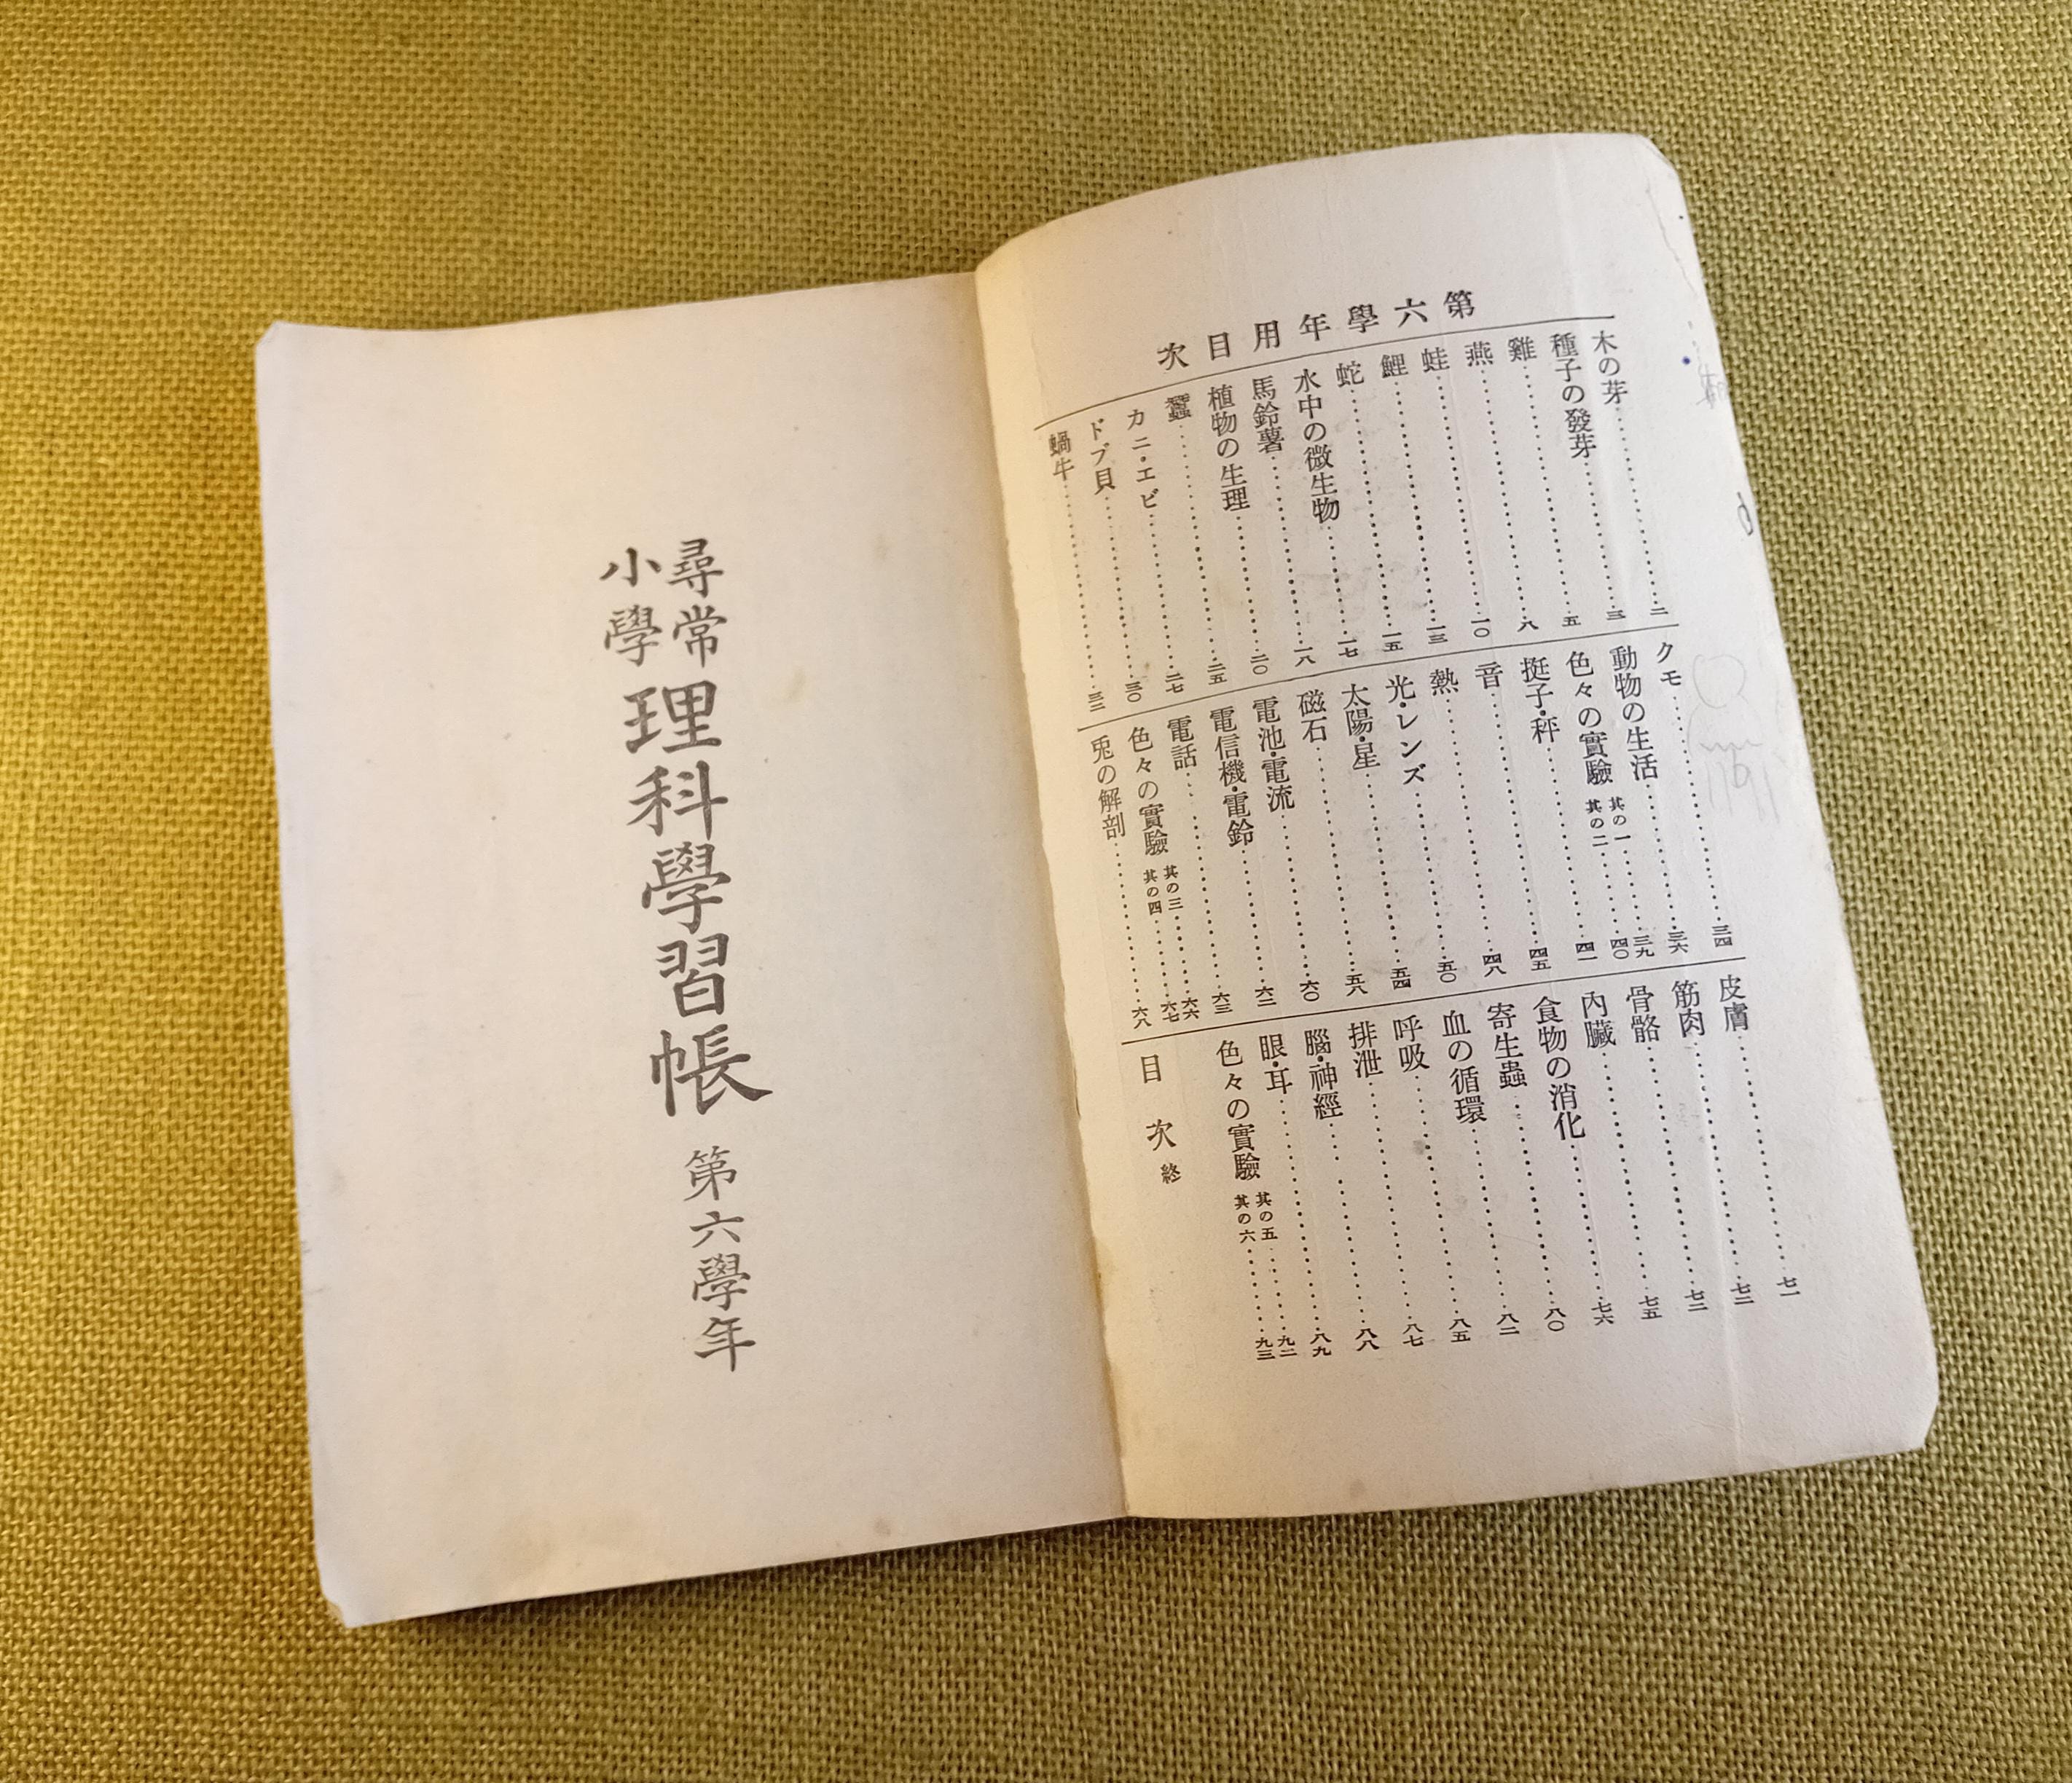 第六學年用目次
木の芽……二
種子の發芽……三
雞……五
燕……八
蛙……一〇
鯉……一三
蛇……一五
水中の微生物……一七
馬鈴薯……一八
植物の生理……二〇
蠶……二五
カニ・エビ……二七
ドブ貝……三〇
蝸牛……三二
クモ……三四
動物の生活……三六
色々の實驗 其の一……三九
其の二……四〇
挺子・秤……四一
音……四五
熱……四八
光・レンズ……五〇
太陽・星……五四
磁石……五八
電池・電流……六〇
電信機・電鈴……六二
電話……六三
色々の實驗 其の三……六六
其の四……六七
兎の解剖……六八
皮膚……七一
筋肉……七二
骨骼……七三
内臟……七五
食物の消化……七六
寄生蟲……八〇
血の循環……八二
呼吸……八五
排泄……八七
腦・神經……八八
眼・耳……八九
色々の實驗 其の五……九二
其の六……九三
目次 終
尋常
小學
理科學習帳 第六學年